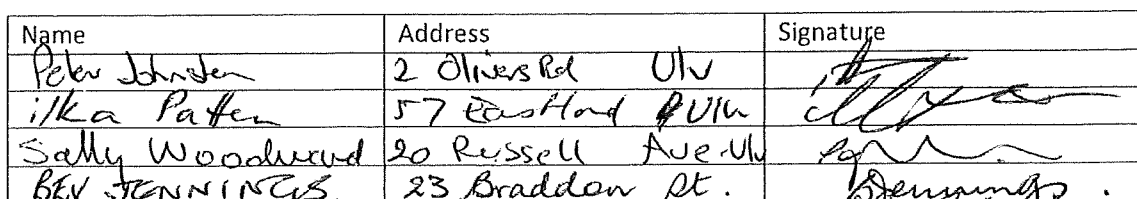 Name Address Signature
Peter Johnston 2 Olivers Rd Ulv
ilka Patten 57 Eastland Ulv
Sally Woodward 20 Russell Ave Ulv
BEV JENNINGS 23 Braddon St. BJennings.